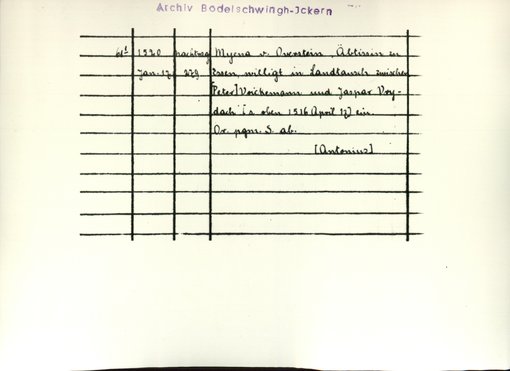 Archiv Bodelschwingh-Ickern
1520 Nachtrag Myena v. Overstein, Äbtissin zu
Jan. 17 279 Essen, willigt in Landtausch zwischen
[Peter] Voickemann und Jaspar Vry-
dach (s. oben 1516 April 17) ein.
Or. pgm. S. ab.
[Antonius]